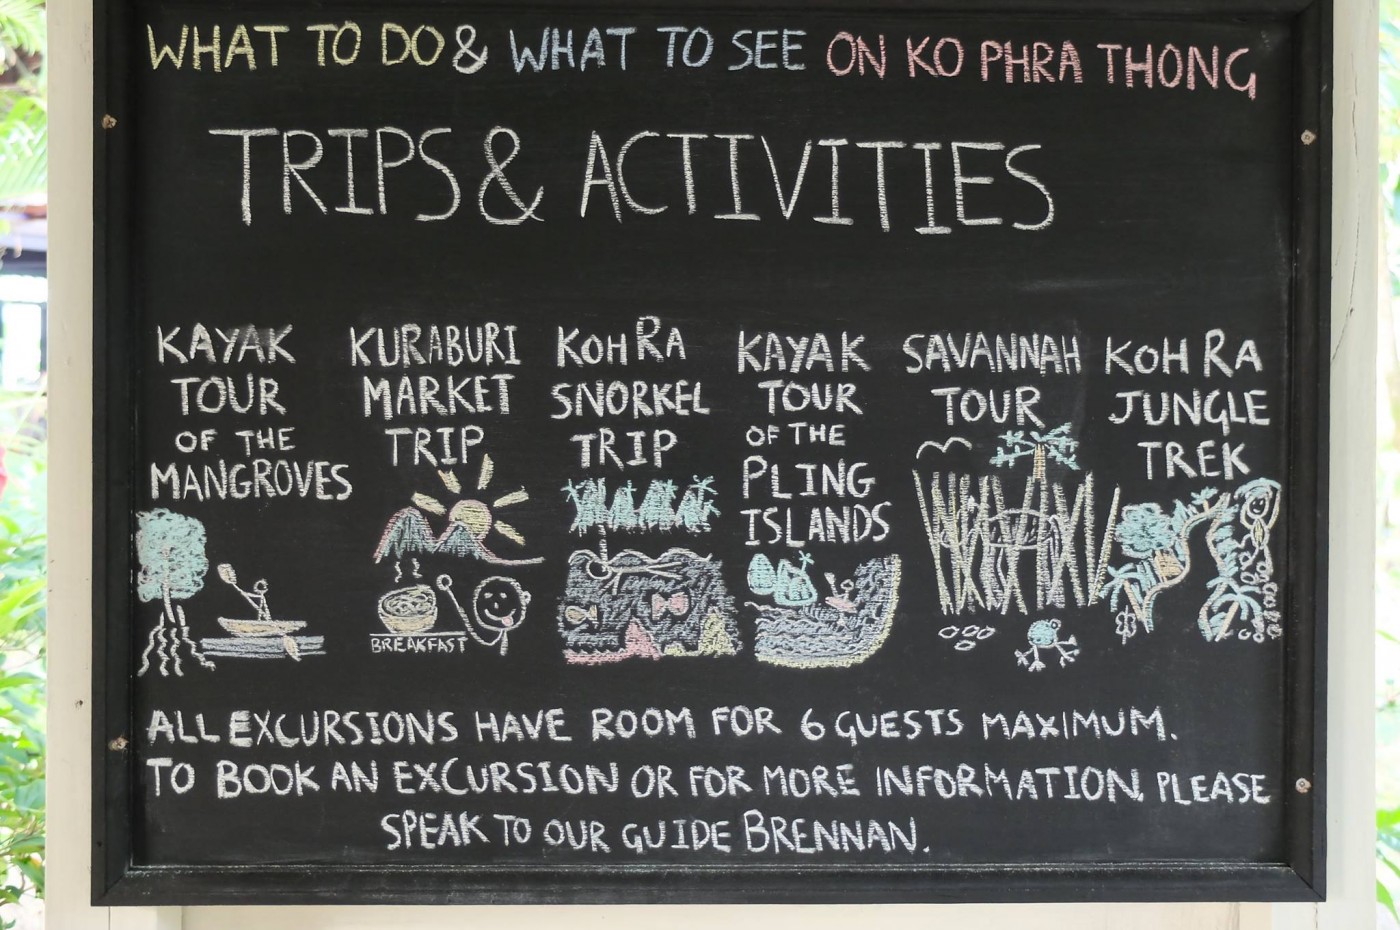 WHAT TO DO & WHAT TO SEE ON KO PHRA THONG
TRIPS & ACTIVITIES
KAYAK
TOUR
OF THE
MANGROVES
KURABURI
MARKET
TRIP
BREAKFAST
KOH RA
SNORKEL
TRIP
KAYAK
TOUR
OF THE
PLING
ISLANDS
SAVANNAH
TOUR
KOH RA
JUNGLE
TREK
ALL EXCURSIONS HAVE ROOM FOR 6 GUESTS MAXIMUM.
TO BOOK AN EXCURSION OR FOR MORE INFORMATION, PLEASE
SPEAK TO OUR GUIDE BRENNAN.